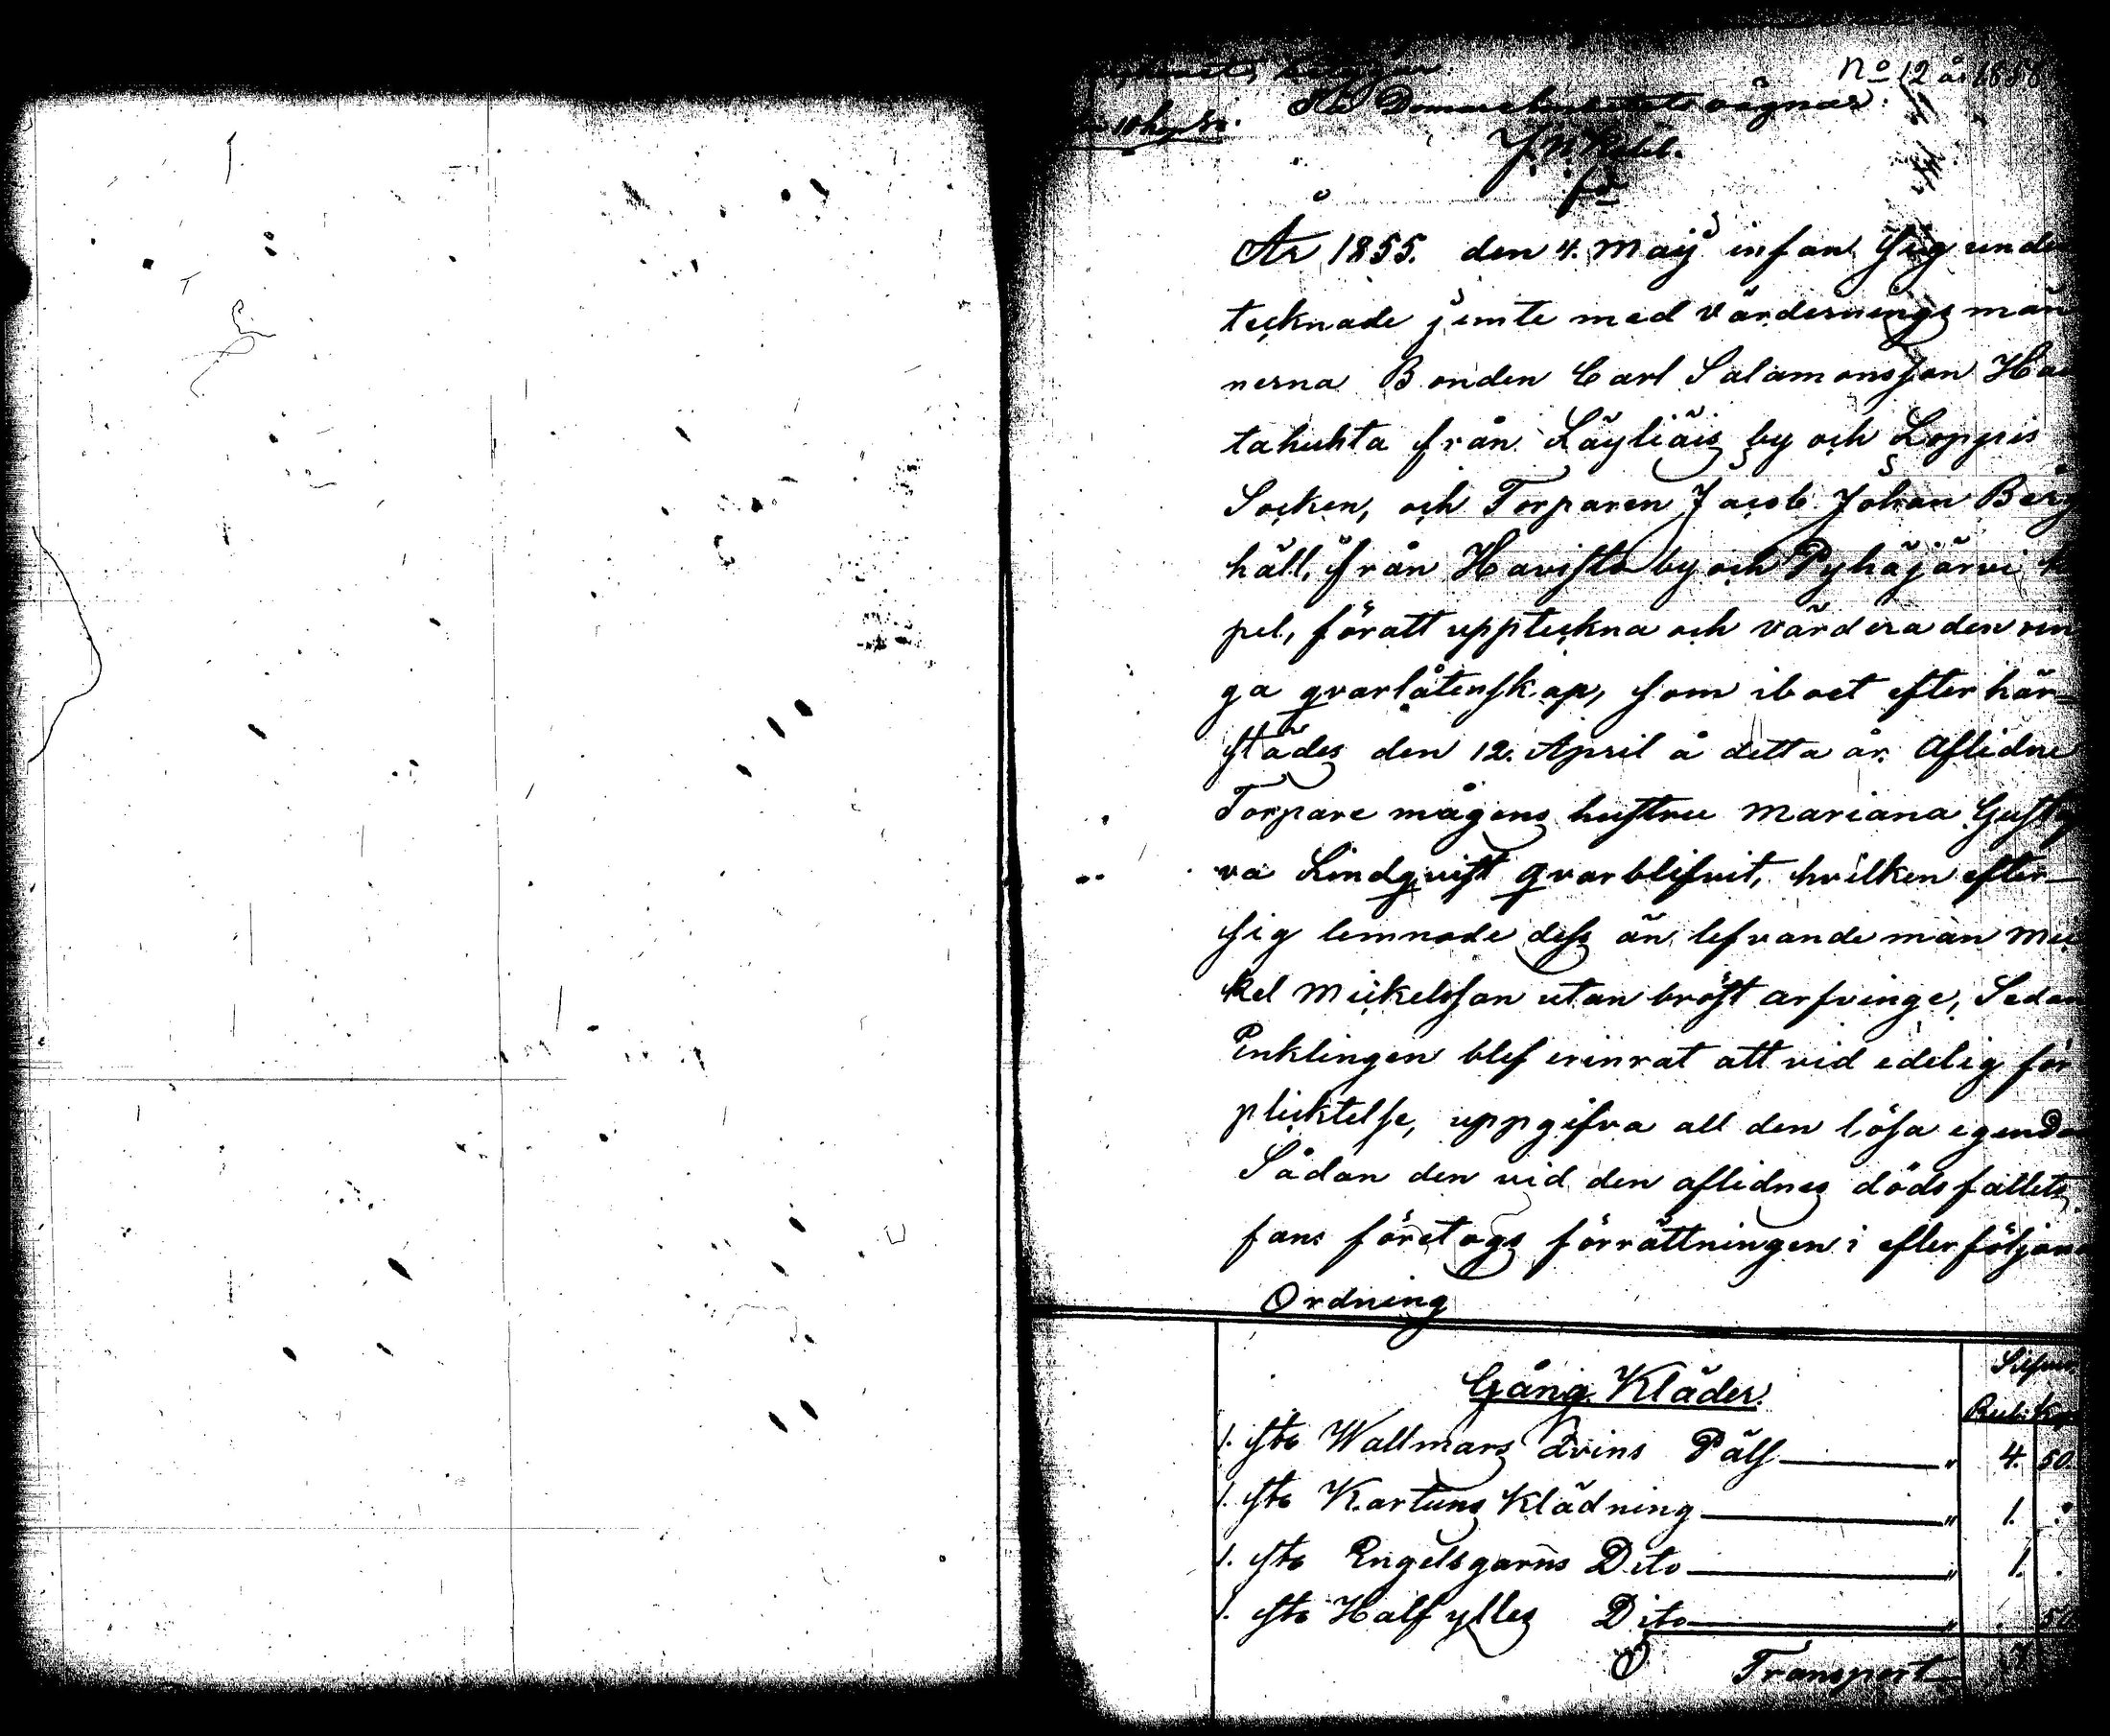 No 12 år 1856
På Domareembetets vägnar:
År 1855. den 4. Maij infan sig unde
tecknade jemte med värderings män
nerna Bonden Carl Salamonsson Hau
tahuhta från Läyliäis by och Loppis
Socken, och Torparen Jacob Johan Berg
häll, från Havisto by och Pyhäjärvi ka
pel, föratt uppteckna och värdera den rin
ga qvarlåtenskap, som i boet efter här-
städes den 12. April å detta år. Aflidne
Torpare mågens hustru Mariana Gusta
va Lindqvist qvarblifvit, hvilken efter
sig lemnade dess än lefvande man Mic
kel Mickelsson utan bröst arfvinge, Sedan
Enklingen blef erinrat att vid edelig för
plicktelse, uppgifva all den lösa egendo
Sådan den vid den aflidnes dödsfallets
fans företogs förrättningen i efterföljan
Ordning
Gång Kläder. Silfver
Rub: Kop
1. st. Wallmars Qvins Päls " 4. 50.
1. st. Kartuns Klädning " 1. .
1. st. Engelsgarns Dito " 1. .
1. st. Halfylles Dito " . 50
Transport 7